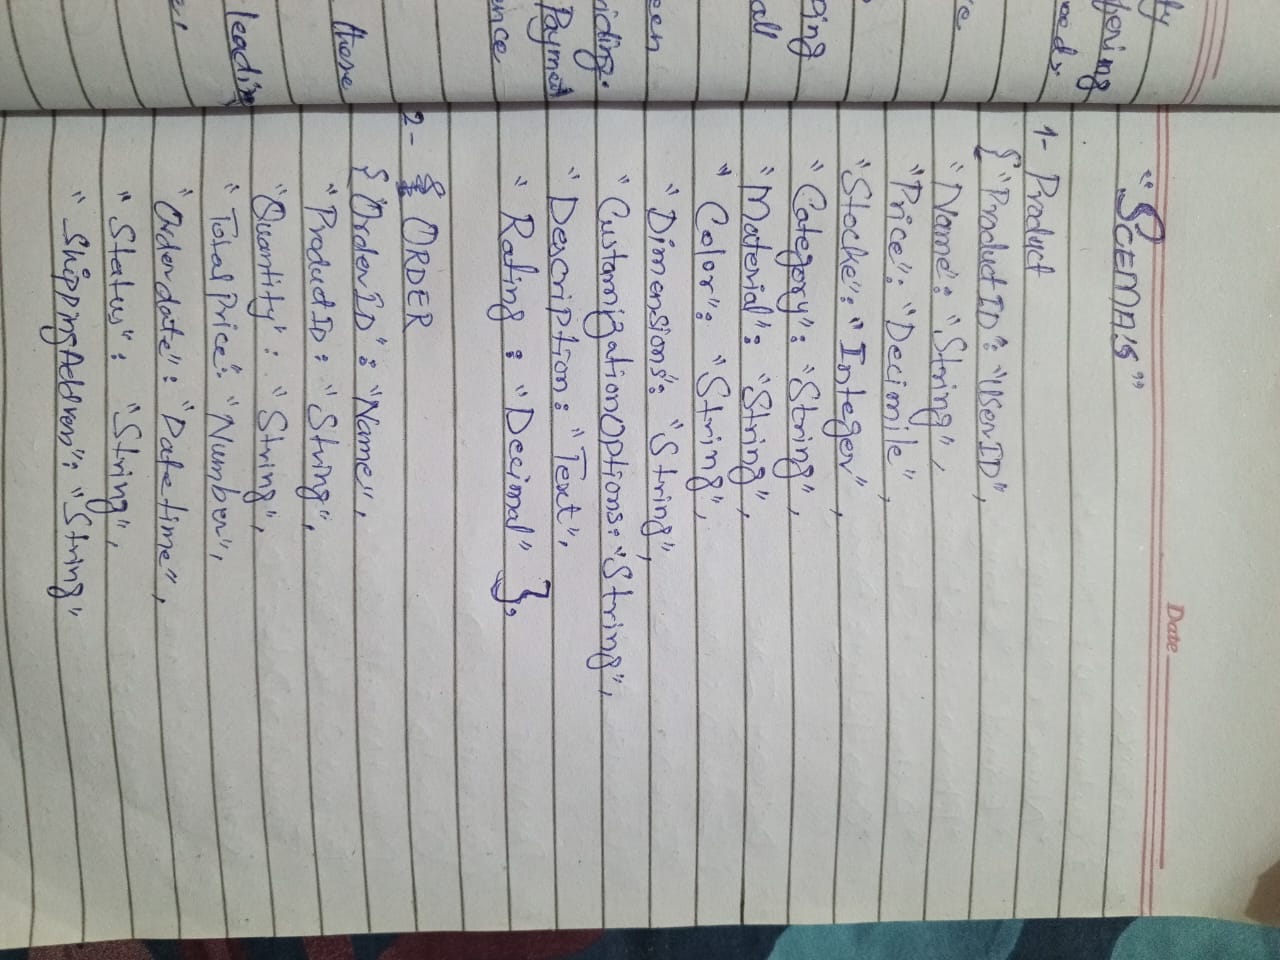 ty
fering
needs
e
ping
all
een
viding.
Payment
ence
these
leadin
Date
"SCEMA'S"
1- Product
{"Product ID": "UserID",
"Name": "String",
"Price": "Decimile",
"Stocke": "Integer",
"Category": "String",
"Material": "String",
"Color": "String",
"Dimensions": "String",
"CustomizationOptions: "String",
"Description: "Text",
"Rating : "Decimal" },
2- ORDER
{"OrderID": "Name",
"ProductID: "String",
"Quantity": "String",
"Total Price": "Number",
"Order date": "Datetime",
"Status": "String",
"ShippingAddress": "String"